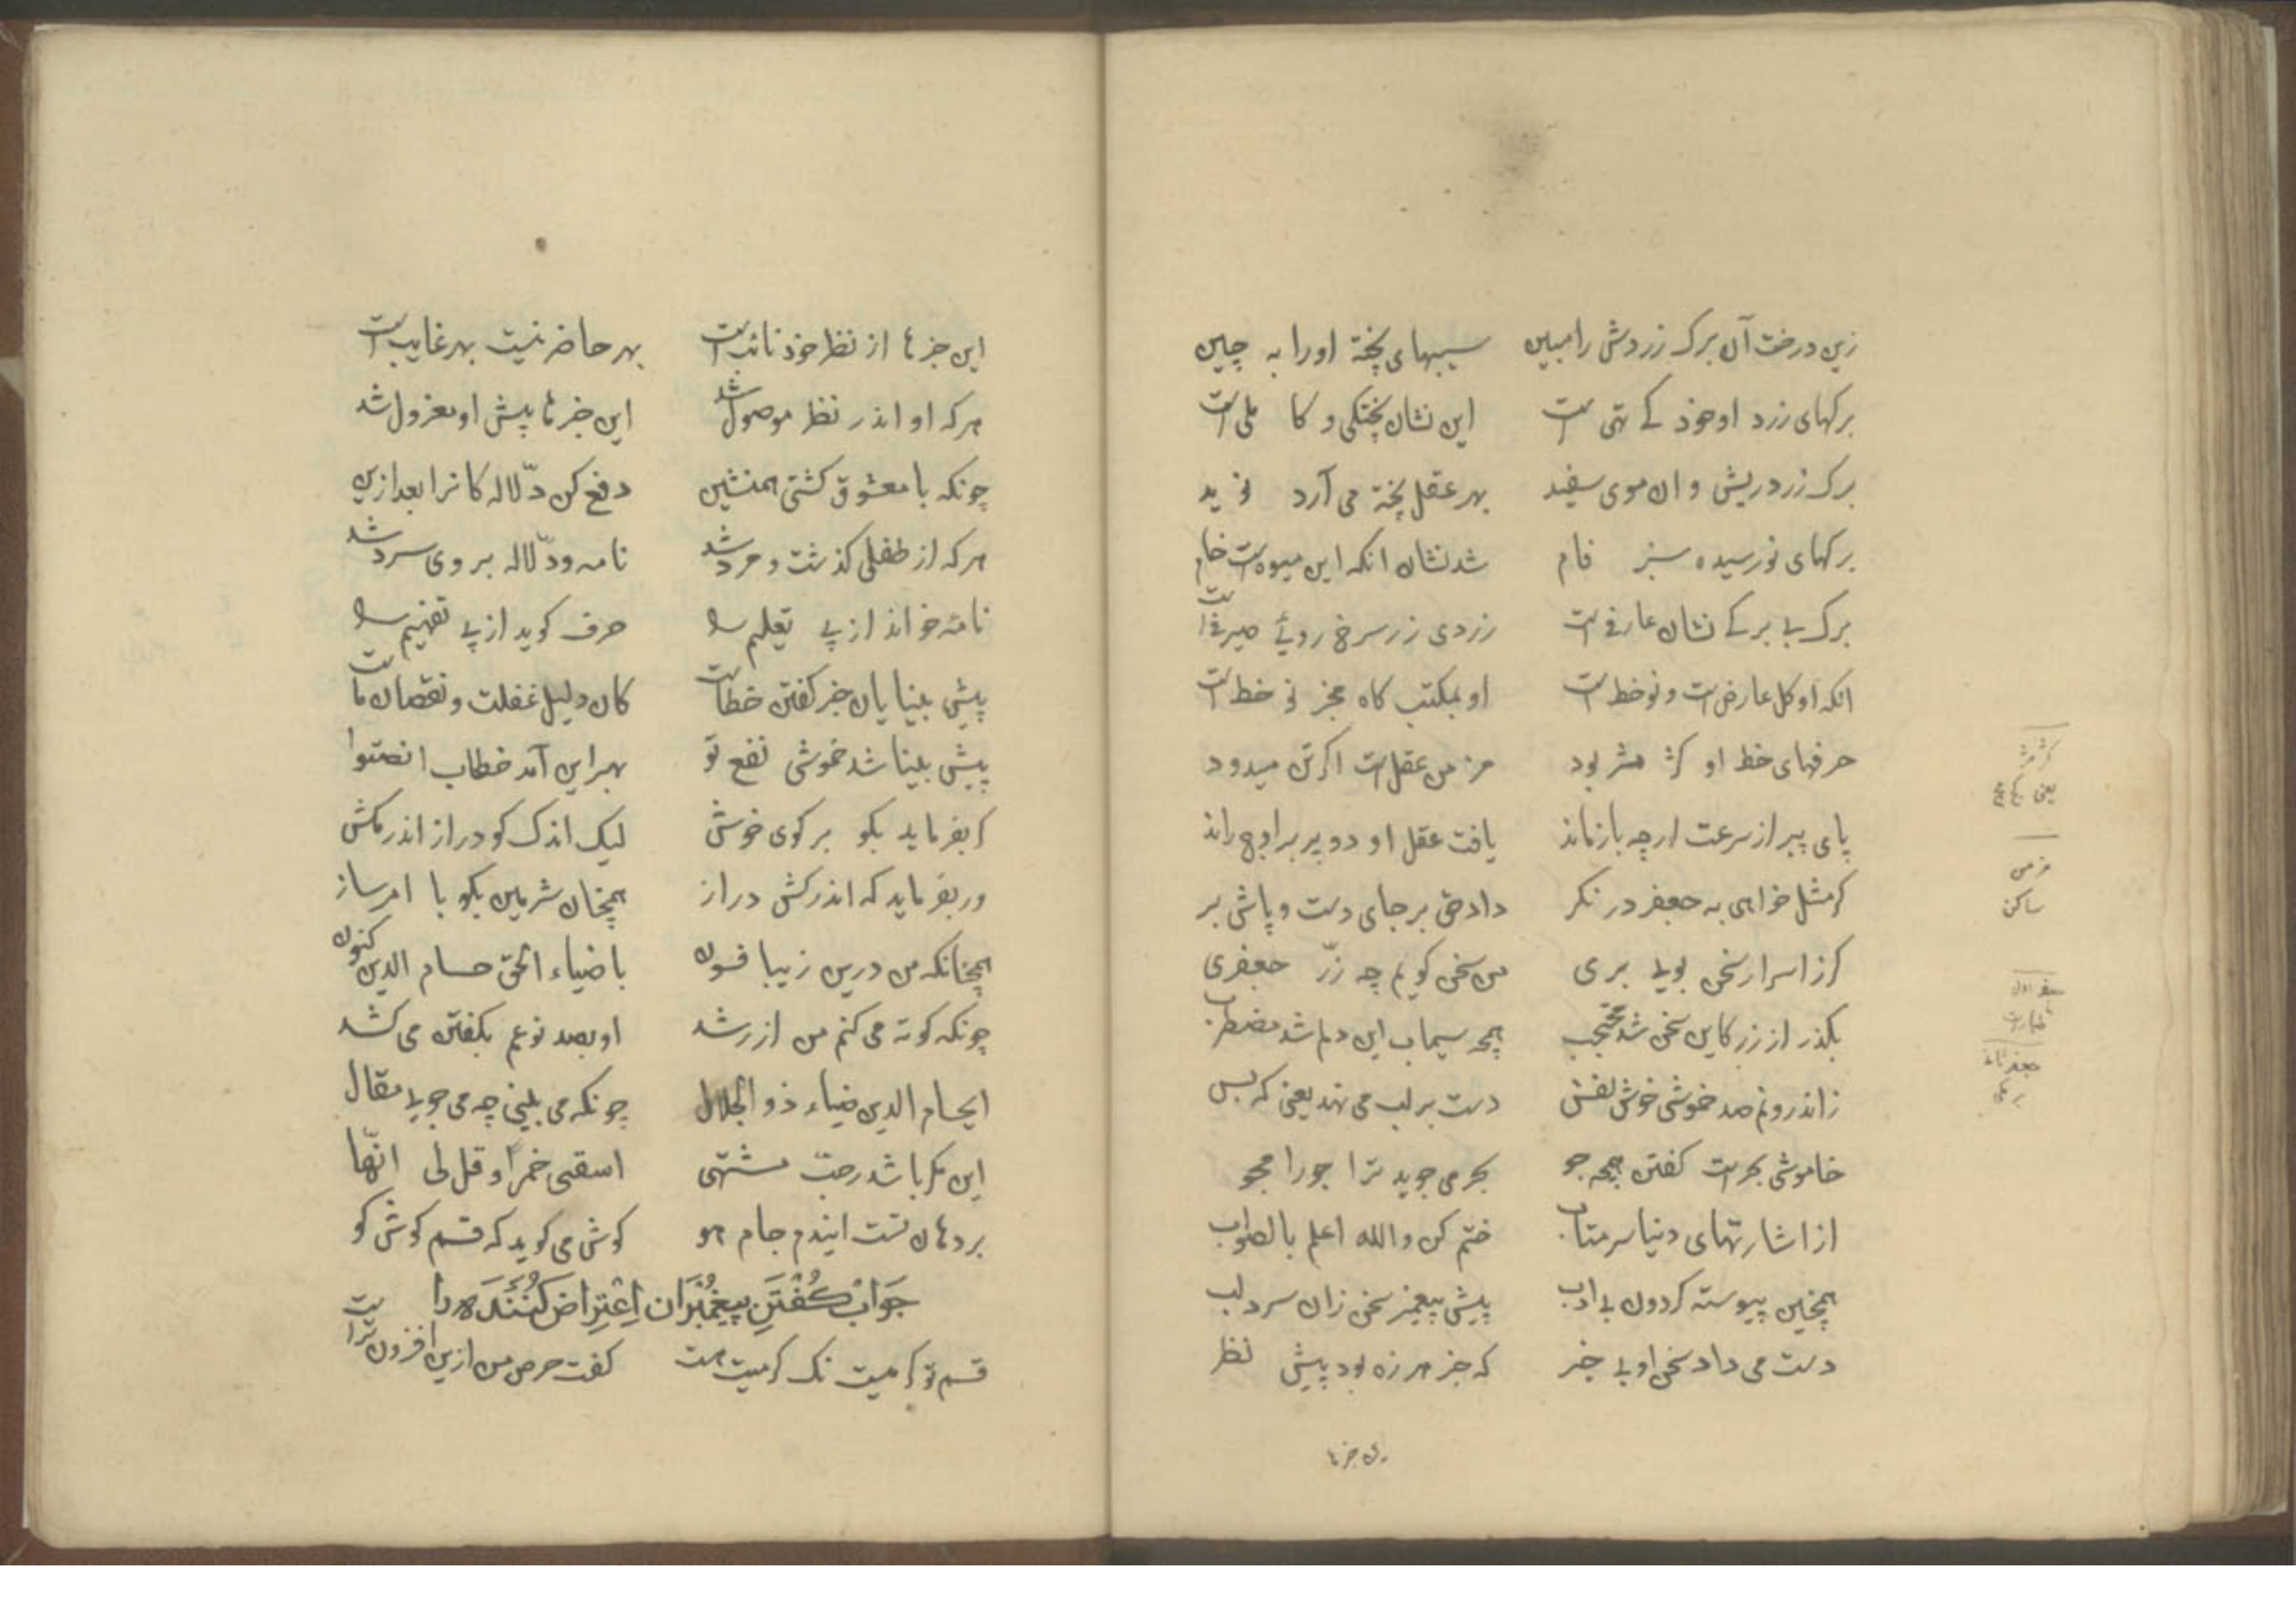 زین درخت آن برک زردش را مبین سیبهای پخته اورا به چین
برکهای زرد او خود کے تهی است این نشان پختکی و کاملی است
برک زرد ریش و ان موی سفید بهر عقل پخته می آرد نوید
برکهای نورسیده سبز فام شد نشان انکه این میوه است خام
برک بے برکے نشان عارفے است زردی زر سرخ روئے صیرفے است
انکه او کل عارض است و نو خط است او بمکتب کاه مخبر نو خط است
حرفهای خط او کژ مژ بود مزمن عقل است اکر تن میدود
پای پیر از سرعت ارچه باز ماند یافت عقل او دو پر بر اوج راند
کر مثل خواهی به جعفر در نکر داد حق بر جای دست و پاش بر
کرز اسرار سخن بویے بری من سخن کویم چه زرّ جعفری
بکذر از زر کاین سخن شد محتجب همچه سیماب این دلم شد مضطرب
ز اندرونم صد خموشی خوش نفس دست بر لب می نهد یعنی که بس
خاموشی بحر است کفتن همچه جو بحر می جوید ترا جو را مجو
از اشارتهای دنیا سر متاب ختم کن والله اعلم بالصواب
همچنین پیوسته کرد ون بے ادب پیش پیغمبر سخن زان سرد لب
دست می داد سخن او بے خبر که خبر هرزه بود پیش نظر
کژ مژ
یعنی کج مج
مزمن
ساکن
جعفر اول
طیار است
جعفر ثانے
برمکی
این خبرها
این خبرها از نظر خود نائب است بهر حاضر نیست بهر غایب است
هرکه او اندر نظر موصول شد این خبرها پیش او معزول شد
چونکه با معشوق کشتی همنشین دفع کن دلّالہ کانرا بعد ازین
هرکه از طفلی کذشت و مرد شد نامه و دلّاله بر وی سرد شد
نامه خواند از پے تعلیم را حرف کوید از پے تفهیم را
پیش بینایان خبر کفتن خطاست کان دلیل غفلت و نقصان ماست
پیش بینا شد خموشی نفع تو بهر این آمد خطاب انصتوا
کر بفرماید بکو بر کوی خوش لیک اندک کو دراز اندر مکش
ور بفرماید که اندر کش دراز همچنان شرمین بکو با امر ساز
همچنانکه من درین زیبا فسون با ضیاء الحق حسام الدین کنون
چونکه کوته می کنم من از رشد او بصد نوعم بکفتن می کشد
ایحسام الدین ضیاء ذو الجلال چونکه می بینی چه می جویے مقال
این مکر باشد ز حبّ مشتهی اسقنی خمراً و قل لی انّها
بر دهان تست ایندم جام هو کوش می کوید که قسم کوش کو
جَوَابْ کُفْتَنِ پیغمْبَران اِعْتِراضْ کُنَنْدَه را
قسم تو کرمیت نک کرمیت هست کفت حرص من ازین افزون تر است